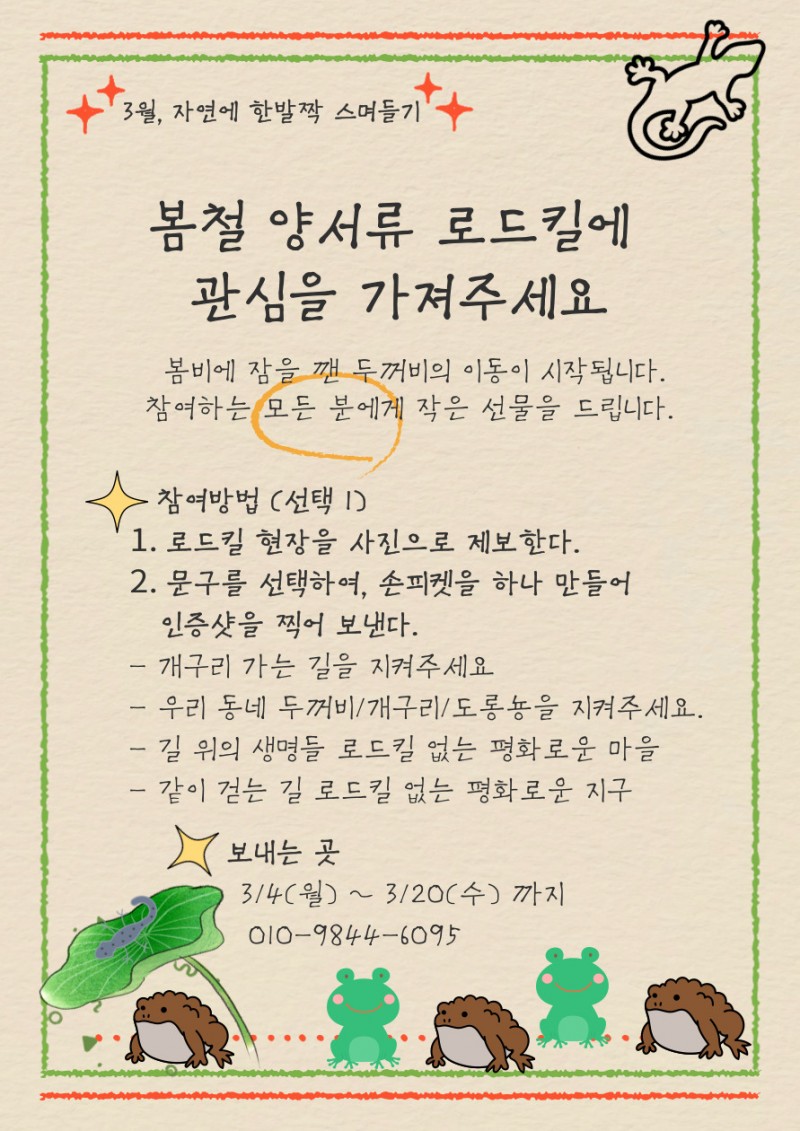 3월, 자연에 한발짝 스며들기
봄철 양서류 로드킬에
관심을 가져주세요
봄비에 잠을 깬 두꺼비의 이동이 시작됩니다.
참여하는 모든 분에게 작은 선물을 드립니다.
참여방법 (선택 1)
1. 로드킬 현장을 사진으로 제보한다.
2. 문구를 선택하여, 손피켓을 하나 만들어
인증샷을 찍어 보낸다.
- 개구리 가는 길을 지켜주세요
- 우리 동네 두꺼비/개구리/도롱뇽을 지켜주세요.
- 길 위의 생명들 로드킬 없는 평화로운 마을
- 같이 걷는 길 로드킬 없는 평화로운 지구
보내는 곳
3/4(월) ~ 3/20(수) 까지
010-9844-6095